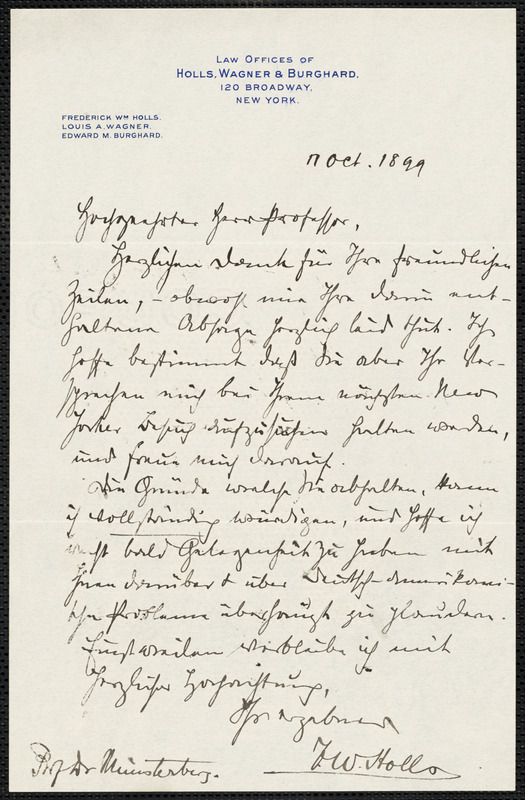 LAW OFFICES OF
HOLLS, WAGNER & BURGHARD,
120 BROADWAY,
NEW YORK.
FREDERICK WM HOLLS.
LOUIS A. WAGNER.
EDWARD M. BURGHARD.
7 Oct. 1899
Hochgeehrter Herr Professor,
Herzlichen Dank für Ihre freundlichen
Zeilen, – obwohl mir Ihre darin ent-
haltene Absage herzlich leid thut. Ich
hoffe bestimmt daß Sie aber Ihr Ver-
sprechen mich bei Ihrem nächsten New
Yorker Besuch aufzusuchen halten werden,
und freue mich darauf.
Die Gründe welche Sie abhalten, kann
ich vollständig würdigen, und hoffe ich
recht bald Gelegenheit zu haben mit
Ihnen darüber & über deutsch-amerikani-
sche Probleme überhaupt zu plaudern.
Einstweilen verbleibe ich mit
herzlicher Hochachtung,
Ihr ergebener
F. W. Holls
Prof Dr Münsterberg.